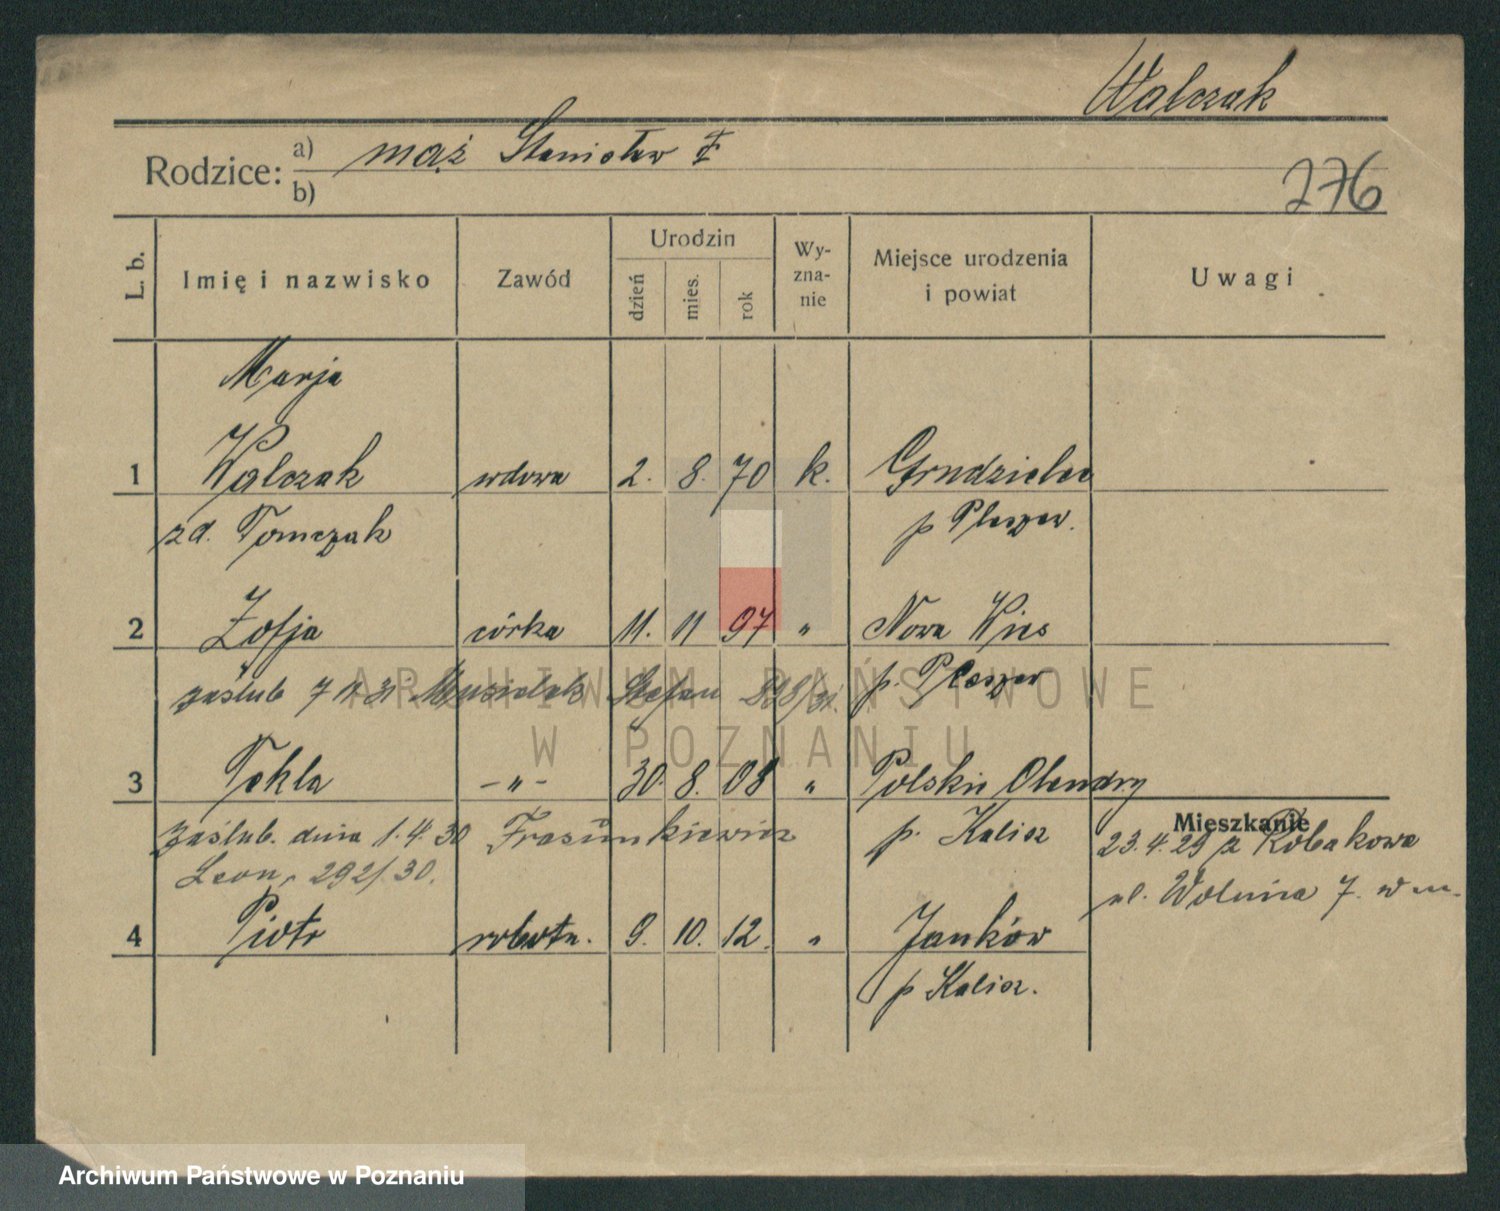 Walczak
Rodzice: a) mąż Stanisław
b)
276
L. b.
Imię i nazwisko
Zawód
Urodzin
dzień
mies.
rok
Wy-
zna-
nie
Miejsce urodzenia
i powiat
Uwagi
Marja
1 Walczak wdowa 2. 8. 70 k. Grudzielec
zd. Tomczak p Pleszew.
2 Zofja córka 11. 11 97 " Nowa Wies
zaślub 7 11 31 Musielak Stefan 898/31. p. Pleszew
3 Tekla -"- 30. 8. 08 " Polskie Olendry
Mieszkanie
zaślub. dnia 1.4.30 Frasunkiewicz p. Kalisz 23.4.29 z Robakowa
Leon, 292/30.
ul. Wolnica 7. w m.
4 Piotr robotn. 9. 10. 12. " Janków
p Kalisz.
ARCHIWUM PAŃSTWOWE
W POZNANIU
Archiwum Państwowe w Poznaniu